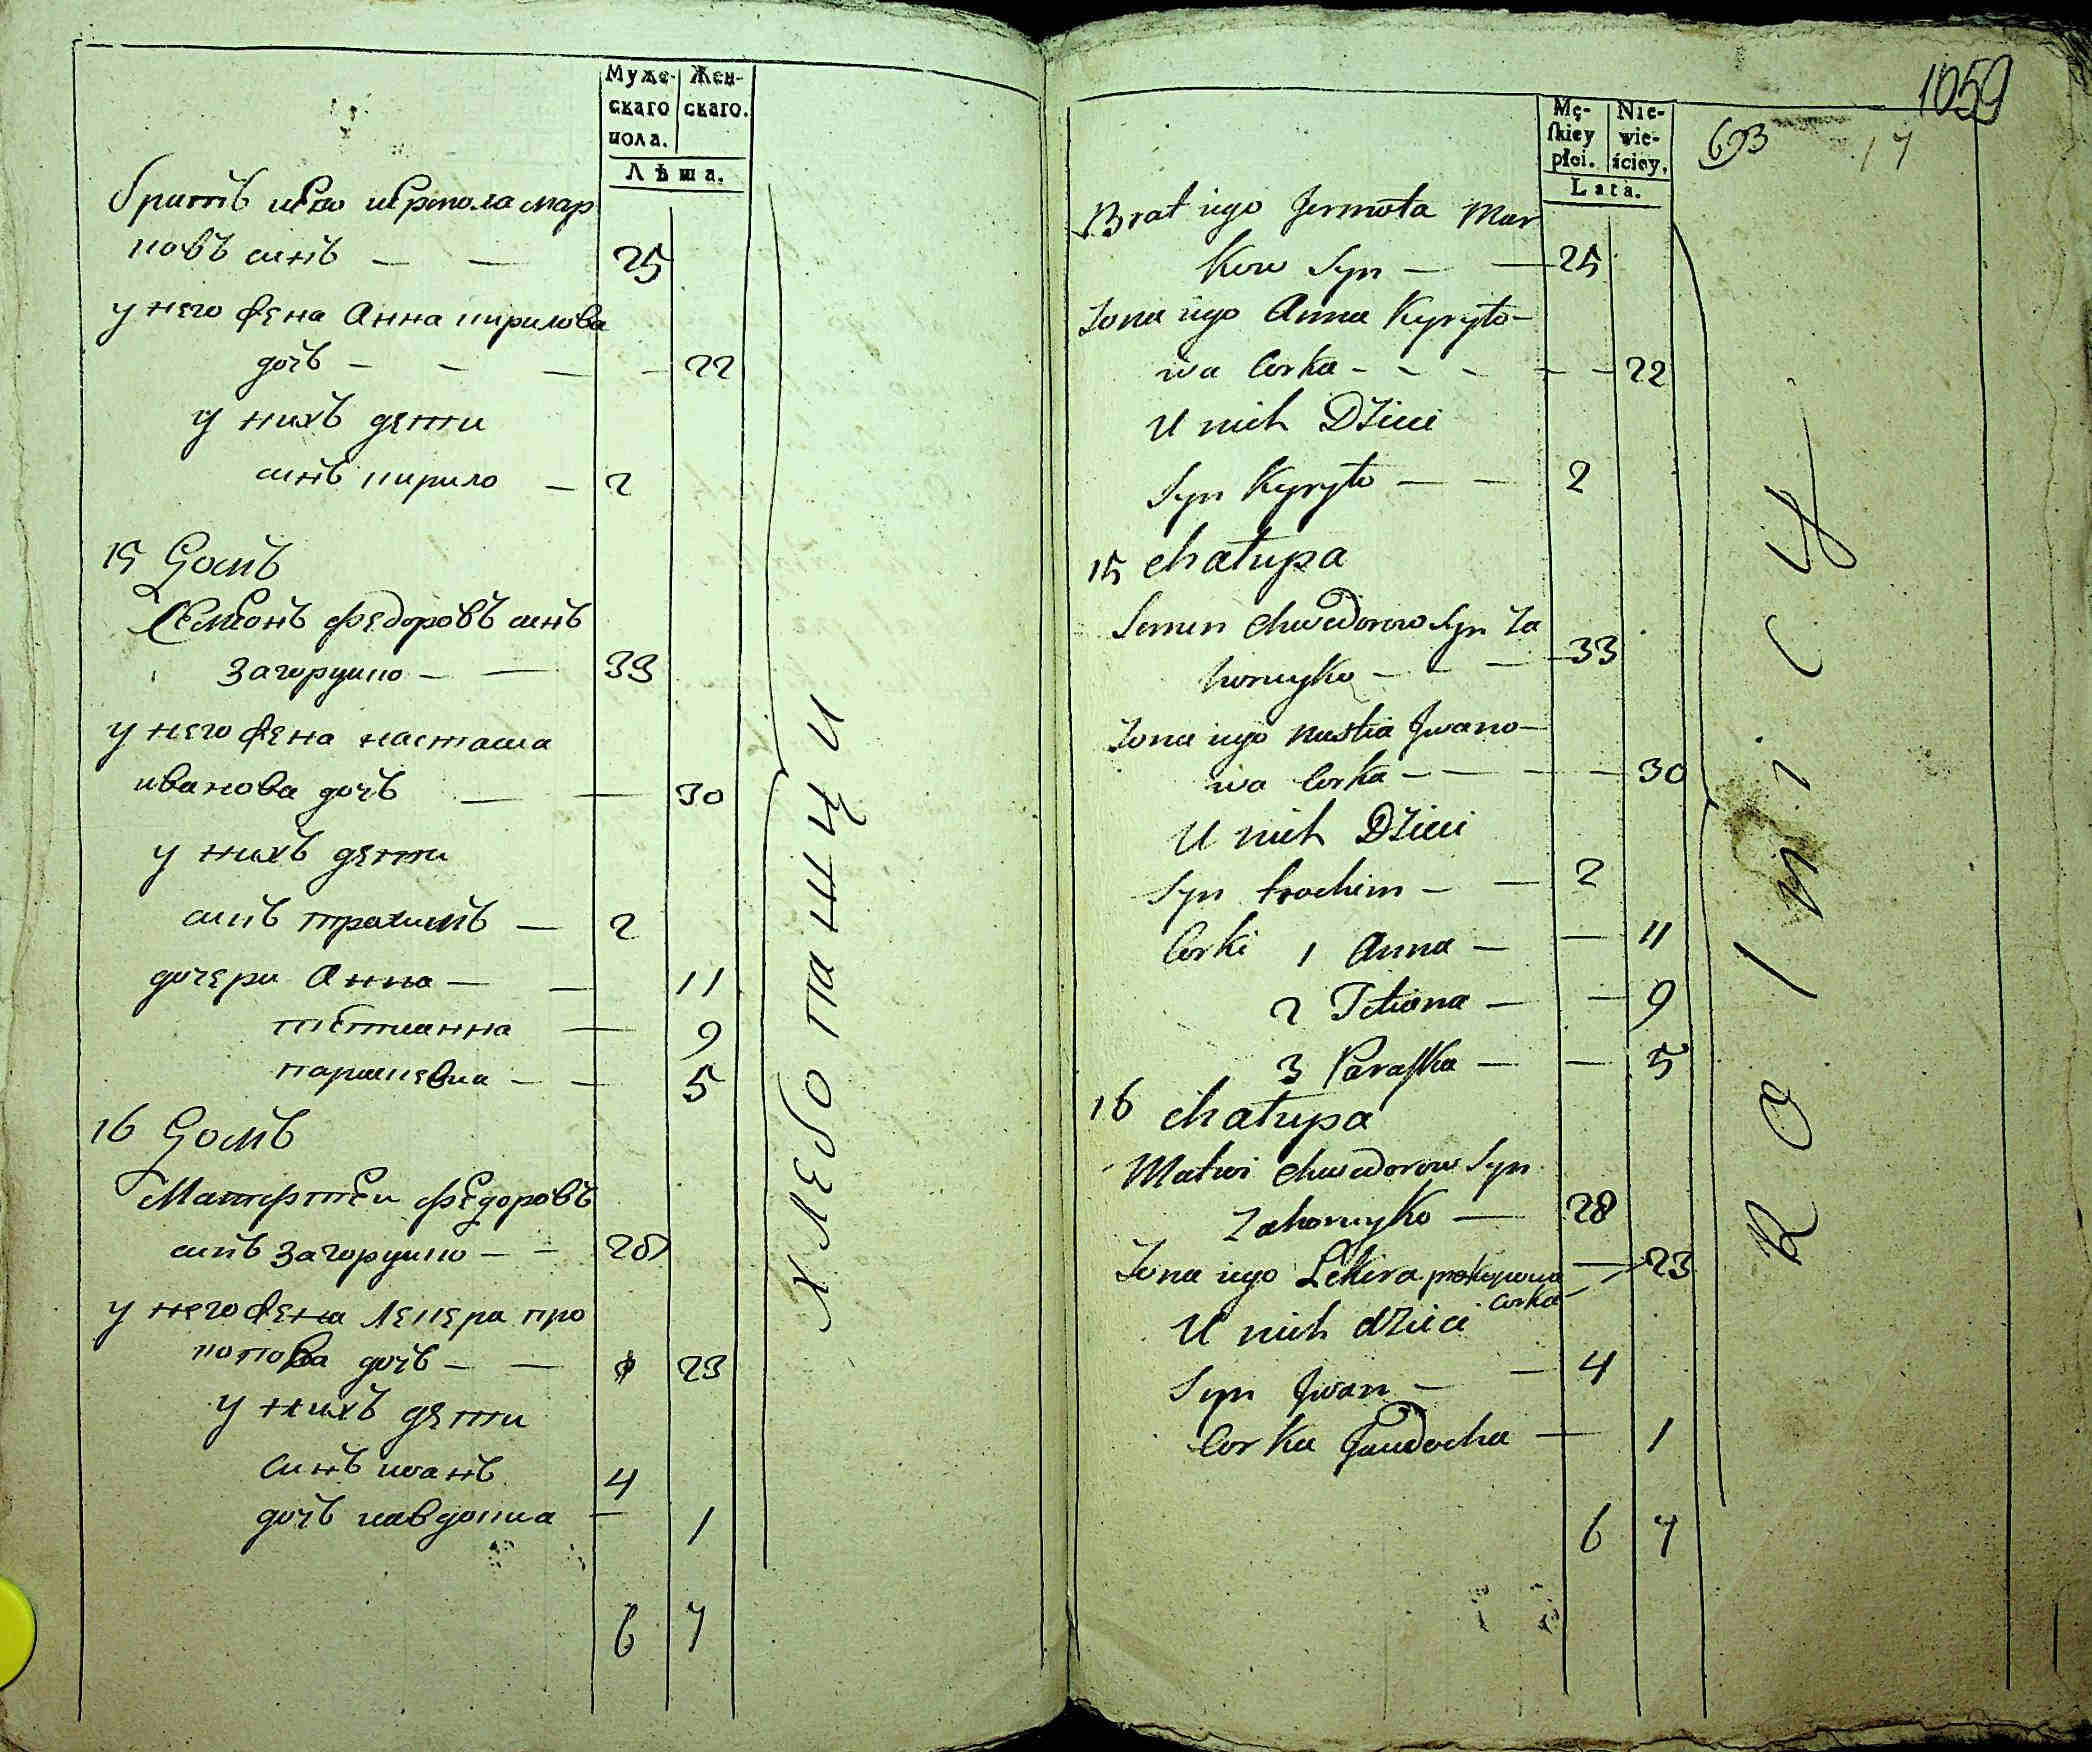 Муже- Жен-
скаго скаго.
пола.
Лѣта.
братъ иево иермола мар
ковъ синъ — — 25
у него жена Анна кирилова
дочъ — — — — 22
у нихъ дети
синъ кирило — 2
15 Домъ
Семионъ федоровъ синъ
Загоруико — — 33
у него жена настасиа
иванова дочъ — — 30
у нихъ дети
синъ трахимъ — 2
дочери Анна — — 11
тетианна — 9
парискевиа — — 5
16 Домъ
Матфтеи федоровъ
синъ Загоруико — — 28
у него жена Лекера про
копова дочъ — — 23
у нихъ дети
Синъ иванъ 4
дочъ иавдокиа — 1
6 7
хлебопашци
1059
693 17
Mę- Nie-
skiey wie-
płci. ściey.
Lata.
Brat iego Jermoła Mar
kow Syn — — 25
Zona iego Anna Kyryło-
wa Corka - - - - — 22
U nich Dzieci
Syn Kyryło — — 2
15 chałupa
Semen Chwedorow Syn Za
horuyko - - — 33
Zona iego Nastia Jwano-
wa Corka — — - — 30
U nich Dzieci
Syn trochim — — 2
Corki 1 Anna — — 11
2 Tetiana — — 9
3 Paraska — — 5
16 chałupa
Matwi Chwedorow Syn
Zahoruyko — 28
Zona iego Łekira prokopowa — 23
Corka
U nich dzieci
Syn Jwan — — 4
Corka Jawdocha — 1
6 7
Rolnicy